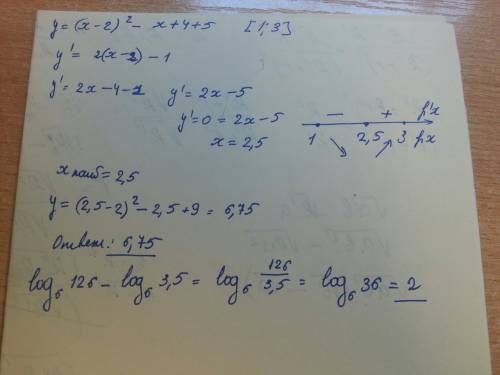 y = (x-2)² - x+4+5 [1; 3]
y' = 2(x-2) - 1
y' = 2x-4-1 y' = 2x-5
y'=0 = 2x-5
x = 2,5
- + f'x
1 2,5 3 fx
x наиб = 2,5
y = (2,5-2)² - 2,5+9 = 6,75
Ответ: 6,75
log₆ 126 - log₆ 3,5 = log₆ 126/3,5 = log₆ 36 = 2